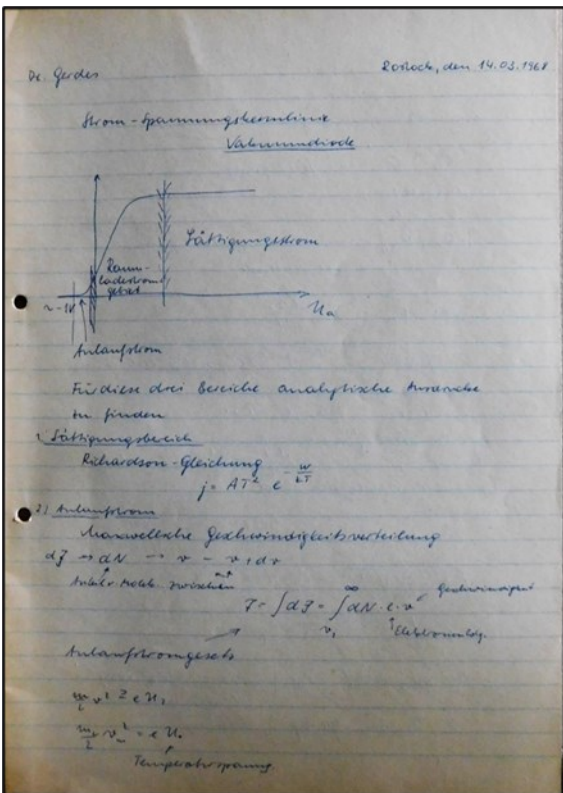 Dr. Gerdes
Rostock, den 14.03.1968
Strom-Spannungskennlinie
Vakuumdiode
Sättigungsstrom
Raum-
ladestrom
gebiet
~ -1V
Ua
Anlaufstrom
Für diese drei Bereiche analytische Ausdrücke
zu finden
1. Sättigungsbereich
Richardson-Gleichung
j = AT² e^(-W/kT)
2) Anlaufstrom
Maxwellsche Geschwindigkeitsverteilung
dJ → dN → v - v, dv
zwischen
Geschwindigkeit
J = ∫ dJ = ∫ dN · e · v
∞
v₁
Anlaufstromgesetz
m/2 v² ≥ e U₁
= e U
Temperaturspannung